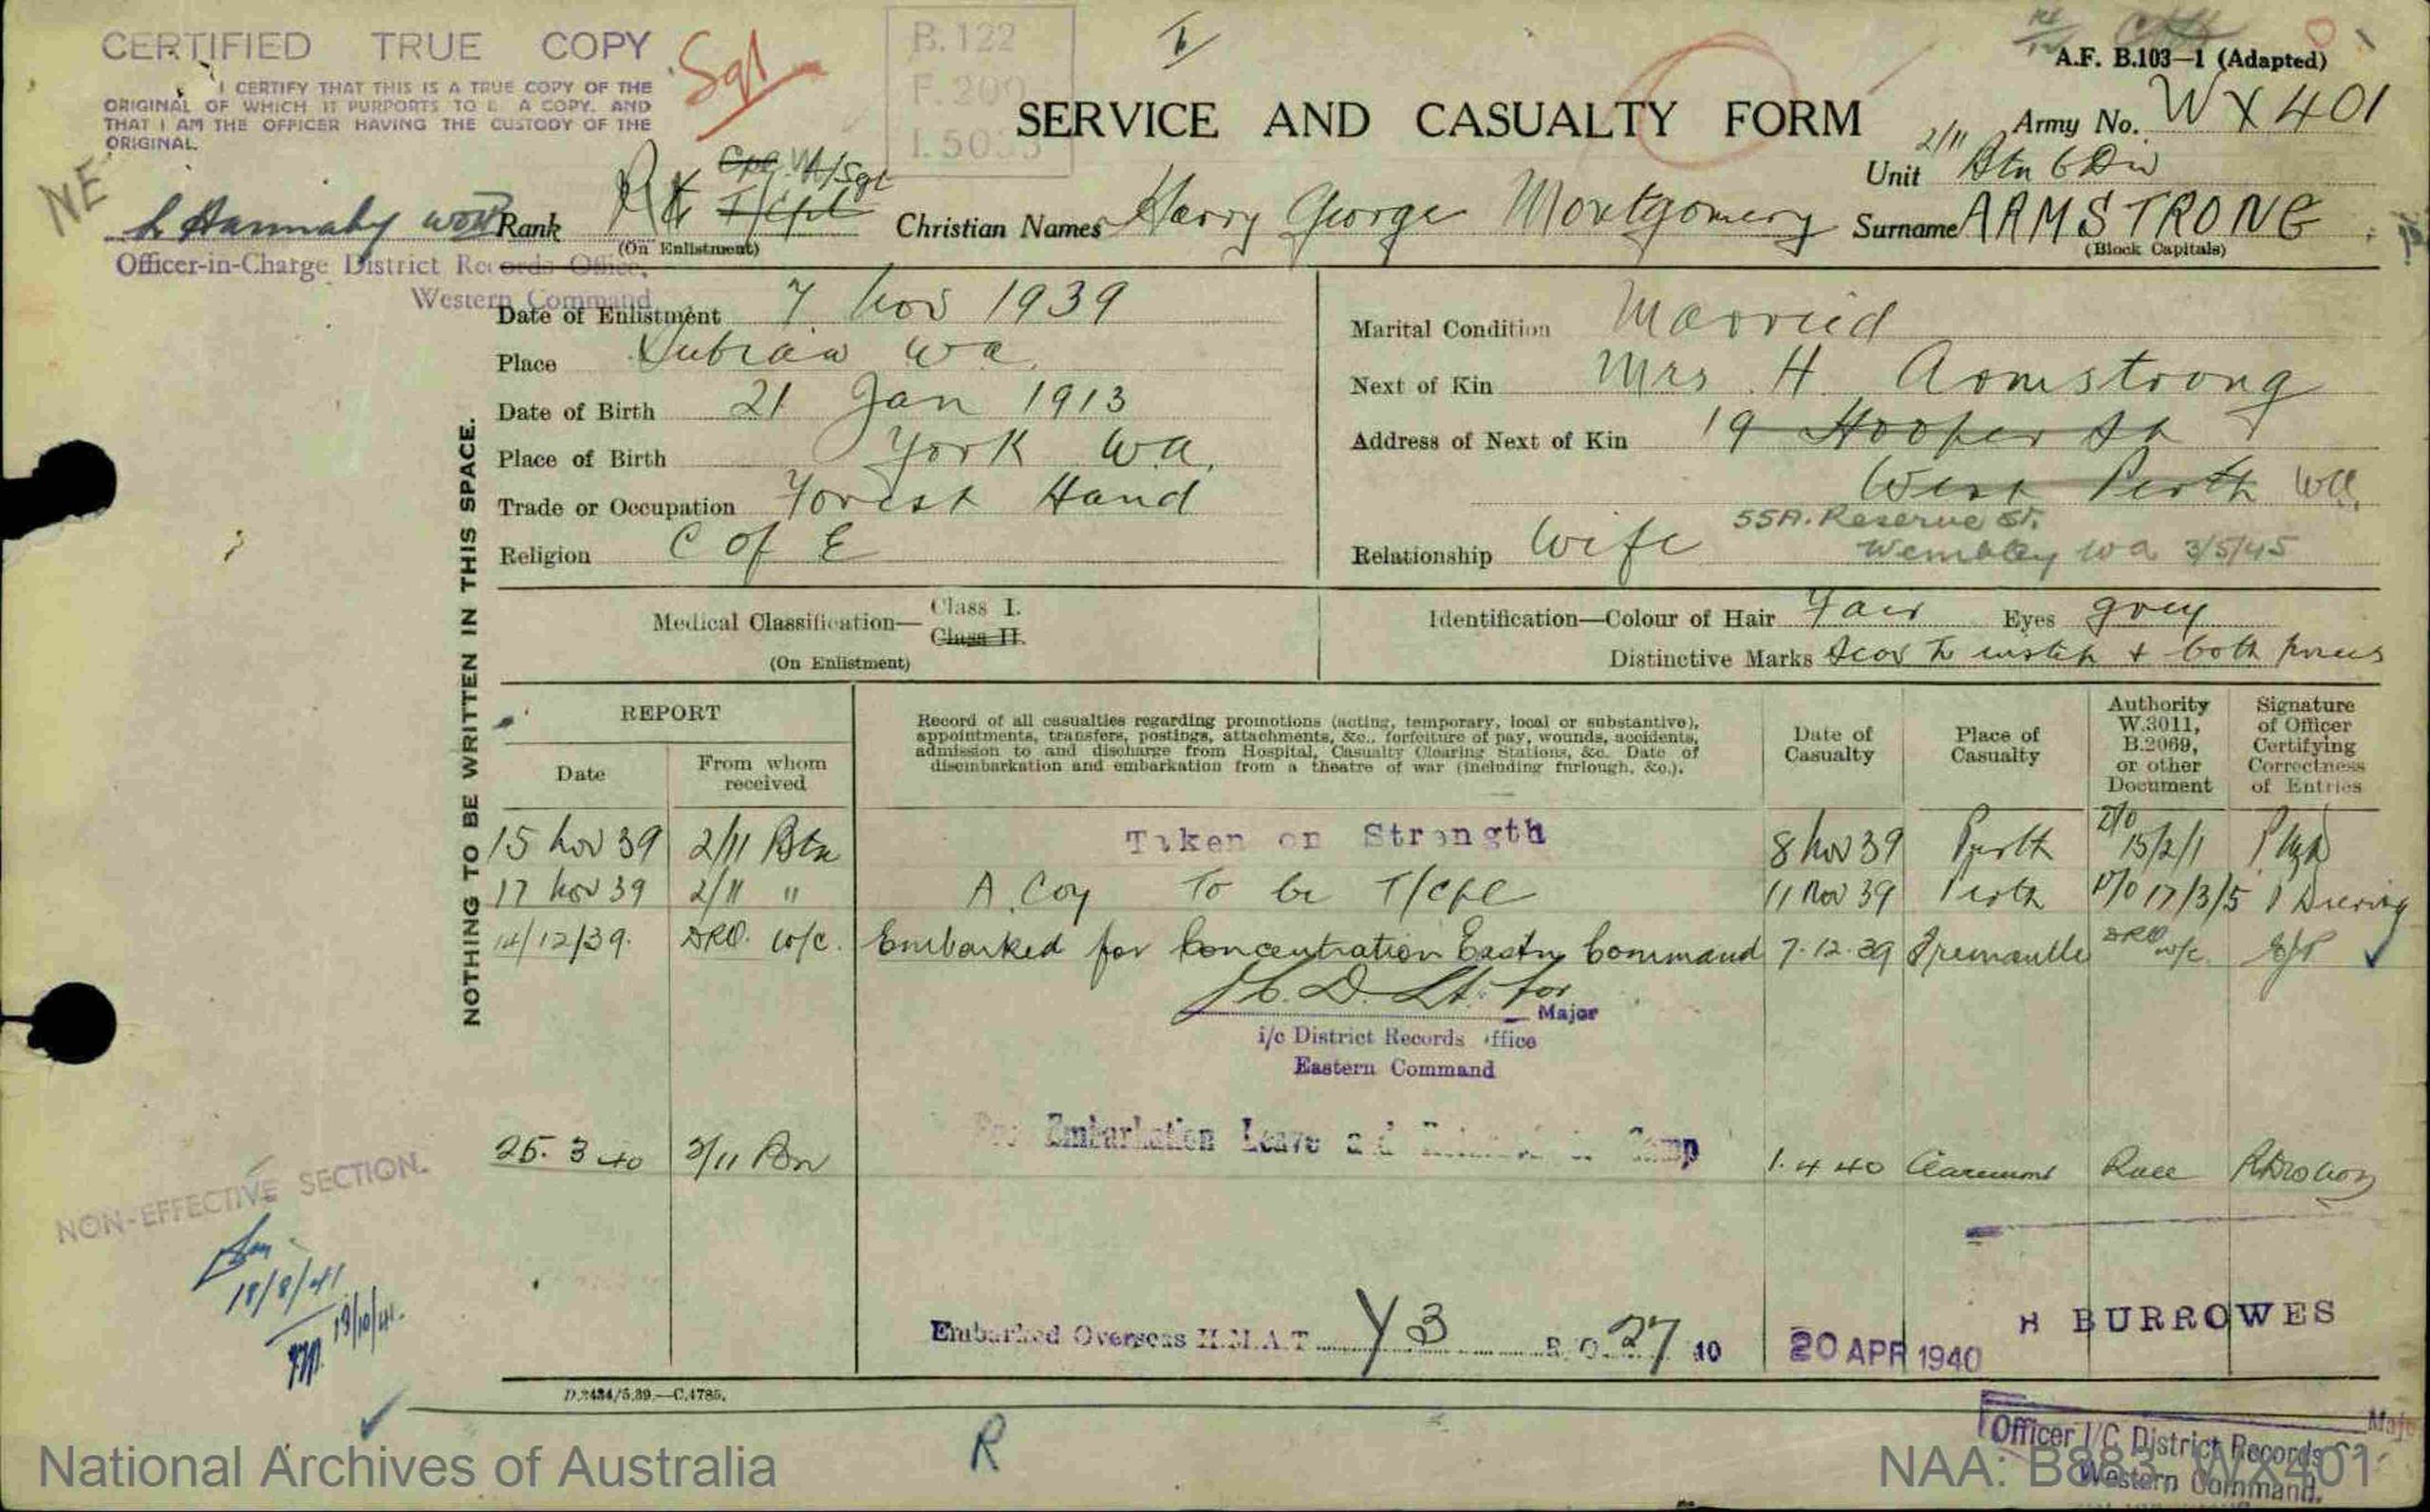 CERTIFIED TRUE COPY
I CERTIFY THAT THIS IS A TRUE COPY OF THE
ORIGINAL OF WHICH IT PURPORTS TO E A COPY. AND
THAT I AM THE OFFICER HAVING THE CUSTODY OF THE
ORIGINAL.
Sgt
B.122
F. 200
A.F. B.103—1 (Adapted)
SERVICE AND CASUALTY FORM
Army No. WX401
Unit 2/11 Btn 6 Div
NE
Officer-in-Charge District Records Office,
Western Command
Rank Cpl W/Sgt
Pte T/Cpl
(On Enlistment)
Christian Names Harry George Montgomery
Surname ARMSTRONG
(Block Capitals)
Date of Enlistment 7 Nov 1939
Place Subiaco Wa
Date of Birth 21 Jan 1913
Place of Birth York Wa.
Trade or Occupation Forest Hand
Religion C of E
Marital Condition Married
Next of Kin Mrs H Armstrong
Address of Next of Kin 19 Hooper St
West Perth Wa.
55A. Reserve St.
Relationship Wife Wembley Wa 3/5/45
Medical Classification— Class I.
Class II.
(On Enlistment)
Identification—Colour of Hair Fair Eyes grey
Distinctive Marks Scar instep + both knees
NOTHING TO BE WRITTEN IN THIS SPACE.
REPORT
Date
From whom received
Record of all casualties regarding promotions (acting, temporary, local or substantive),
appointments, transfers, postings, attachments, &c., forfeiture of pay, wounds, accidents,
admission to and discharge from Hospital, Casualty Clearing Stations, &c. Date of
disembarkation and embarkation from a theatre of war (including furlough, &c.).
Date of Casualty
Place of Casualty
Authority W.3011, B.2069, or other Document
Signature of Officer Certifying Correctness of Entries
15 Nov 39 2/11 Btn Taken on Strength 8 Nov 39 Perth 15/2/1
17 Nov 39 2/11 " A Coy To be T/Cpl 11 Nov 39 Perth 17/3/5
14/12/39. DRO. W/C. Embarked for Concentration Eastn Command 7.12.39 Fremantle DRO W/C.
Lt. for
Major
i/c District Records ffice
Eastern Command
25.3.40 2/11 Bn Embarkation Leave and Camp 1.4.40 Claremont
NON-EFFECTIVE SECTION.
18/8/41
19/10/41.
Embarked Overseas H.M.A.T Y3 R.O. 27 40 20 APR 1940
H BURROWES
D.2484/5.39.—C.4785.
Officer I/C District Records
Western Command.
R
National Archives of Australia
NAA: B883, WX401